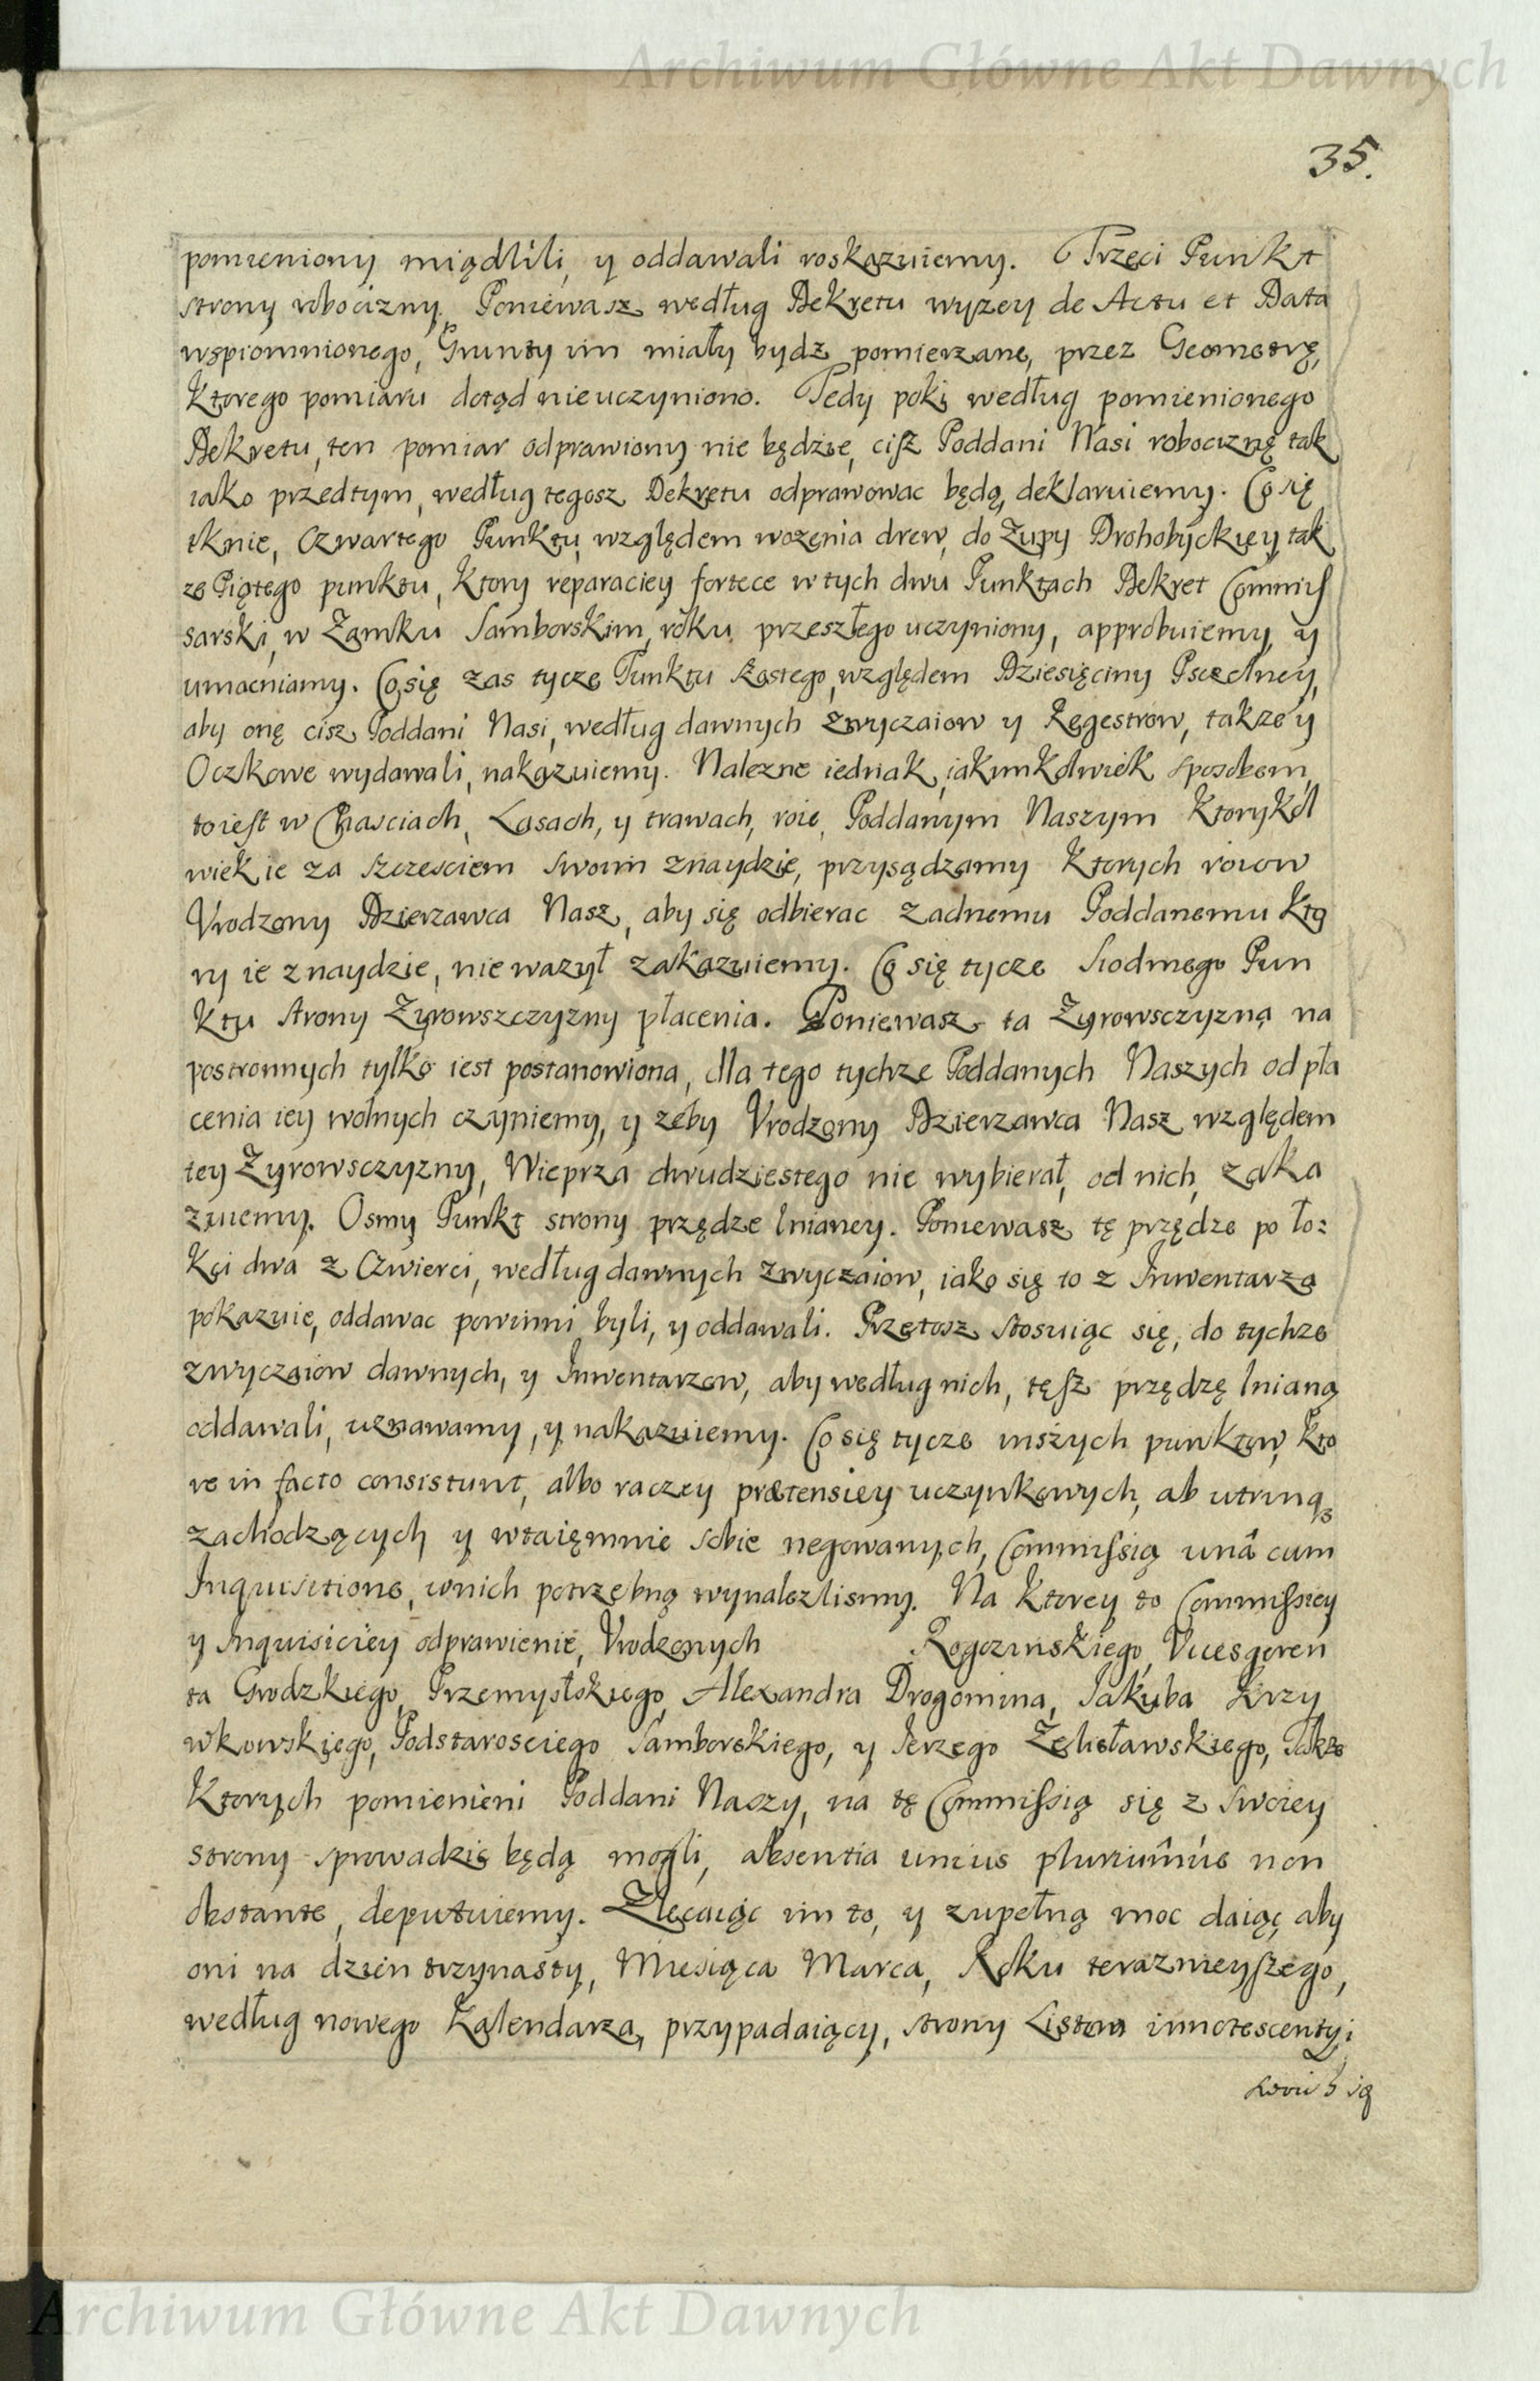 Archiwum Główne Akt Dawnych
35.
pomieniony miądlili, y oddawali roskazuiemy. Trzeci Punkt
strony robocizny, Poniewasz według Dekretu wyzey de Actu et Data
wspiomnionego, Grunty im miały bydz pomierzane, przez Geometrę,
Ktorego pomiaru dotąd nie uczyniono. Tedy poki według pomienionego
Dekretu, ten pomiar odprawiony nie będzie, cisz Poddani Nasi robociznę tak
iako przedtym, według tegosz Dekretu odprawowac będą, deklaruiemy. Co się
tknie, Czwartego Punktu, względem wozenia drew, do Zupy Drohobyckiey tak
ze Piątego punktu, Ktory reparaciey fortece w tych dwu Punktach Dekret Commis
sarski, w Zamku Samborskim, roku przeszłego uczyniony, approbuiemy, y
umacniamy. Co się zas tycze Punktu szostego, względem Dziesięciny Psczelney,
aby onę cisz Poddani Nasi, według dawnych zwyczaiow y Regestrow, takze y
Oczkowe wydawali, nakazuiemy. Nalezne iednak, iakimkolwiek sposobem,
to iest w Chasciach, Lasach, y trawach, roie, Poddanym Naszym Ktorykol
wiek ie za szczesciem swoim znaydzie, przysądzamy Ktorych roiow
Vrodzony Dzierzawca Nasz, aby się odbierac zadnemu Poddanemu Kto
ry ie znaydzie, nie wazył zakazuiemy. Co się tycze Siodmego Pun
Ktu strony Zyrowszczyzny płacenia. Poniewasz ta Zyrowsczyzna na
postronnych tylko iest postanowiona, dla tego tychze Poddanych Naszych od pła
cenia iey wolnych czyniemy, y zeby Vrodzony Dzierzawca Nasz względem
tey Zyrowsczyzny, Wieprza dwudziestego nie wybierał, od nich, zaka
zuiemy. Osmy Punkt strony przędze lnianey. Poniewasz tę przędze po ło:
Kci dwa z Czwierci, według dawnych zwyczaiow, iako się to z Inwentarza
pokazuie, oddawac powinni byli, y oddawali. Przetosz stosuiąc się, do tychze
zwyczaiow dawnych, y Inwentarzow, aby według nich, tęsz przędzę lnianą
oddawali, uznawamy, y nakazuiemy. Co się tycze inszych punktow, Kto
re in facto consistunt, albo raczey prætensiey uczynkowych, ab utrinq3
zachodzących y wtaięmnie sobie negowanych, Commissią unâ cum
Inquisitione, wnich potrzebną wynalezlismy. Na Ktorey to Commissiey
y Inquisiciey odprawienie, Vrodzonych Rogozinskiego, Vicesgeren
ta Grodzkiego, Przemyslskiego, Alexandra Drogomina, Jakuba Krzy
wkowskiego, Podstarosciego Samborskiego, y Jerzego Zelisławskiego, Takze
Ktorych pomienieni Poddani Naszy, na tę Commissią się z swoiey
strony sprowadzic będą mogli, absentia unius pluriumue non
obstante, deputuiemy. Zlecaiąc im to, y zupełną moc daiąc, aby
oni na dzien trzynasty, Miesiąca Marca, Roku teraznieyszego,
według nowego Kalendarza, przypadaiący, strony Listem innotescentyi
Archiwum Główne Akt Dawnych